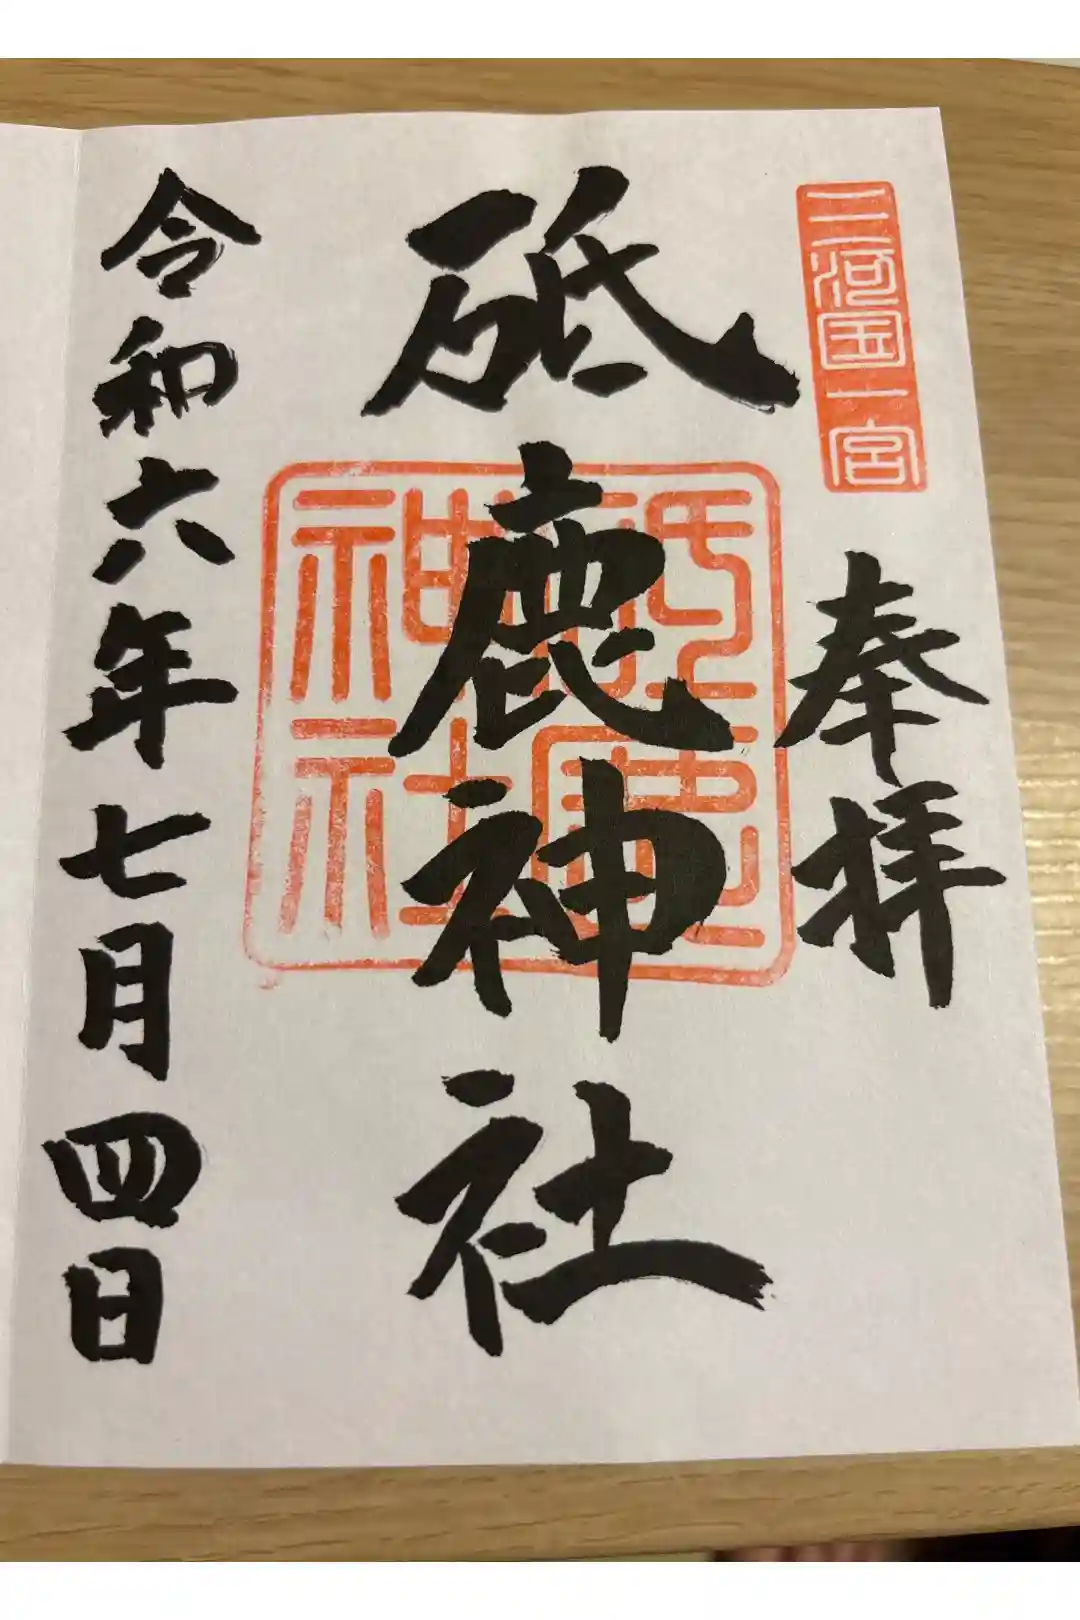 三河国一宮
奉拝
砥鹿神社
砥鹿神社
令和六年七月四日